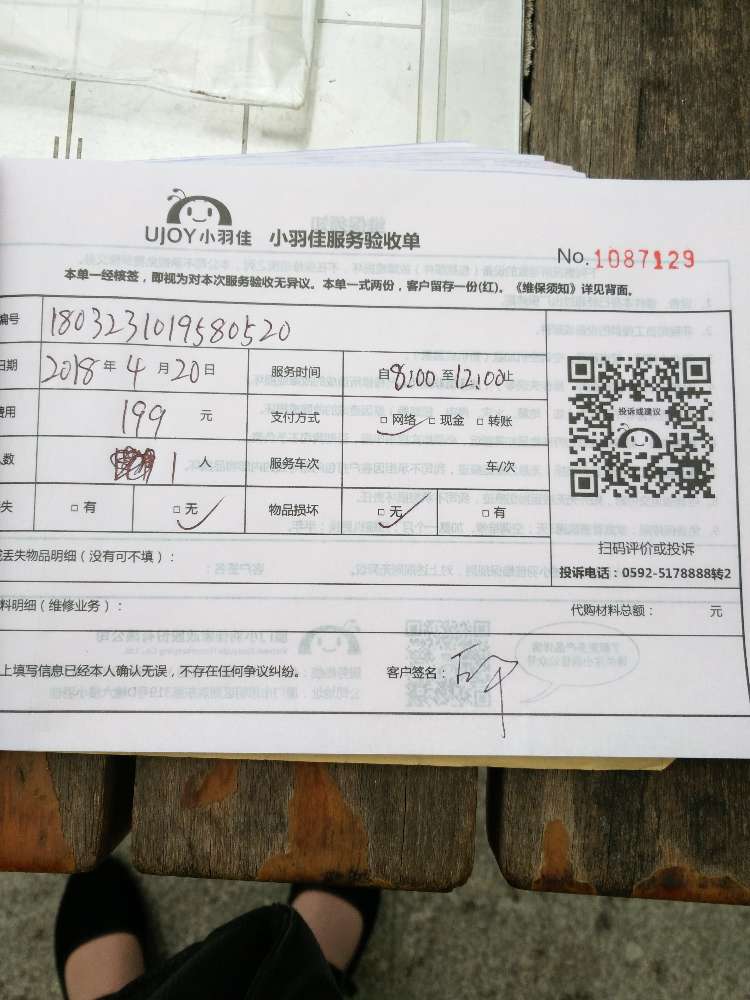 UJOY小羽佳 小羽佳服务验收单
No.1087129
本单一经核签，即视为对本次服务验收无异议。本单一式两份，客户留存一份(红)。《维保须知》详见背面。
编号 1803231019580520
日期 2018年4月20日 服务时间 自8:00至12:00止
费用 199 元 支付方式 □网络 □现金 □转账
人数 1人 服务车次 车/次
失 □有 □无 物品损坏 □无 □有
投诉或建议
扫码评价或投诉
投诉电话：0592-5178888转2
丢失物品明细（没有可不填）：
料明细（维修业务）： 代购材料总额： 元
上填写信息已经本人确认无误，不存在任何争议纠纷。 客户签名：